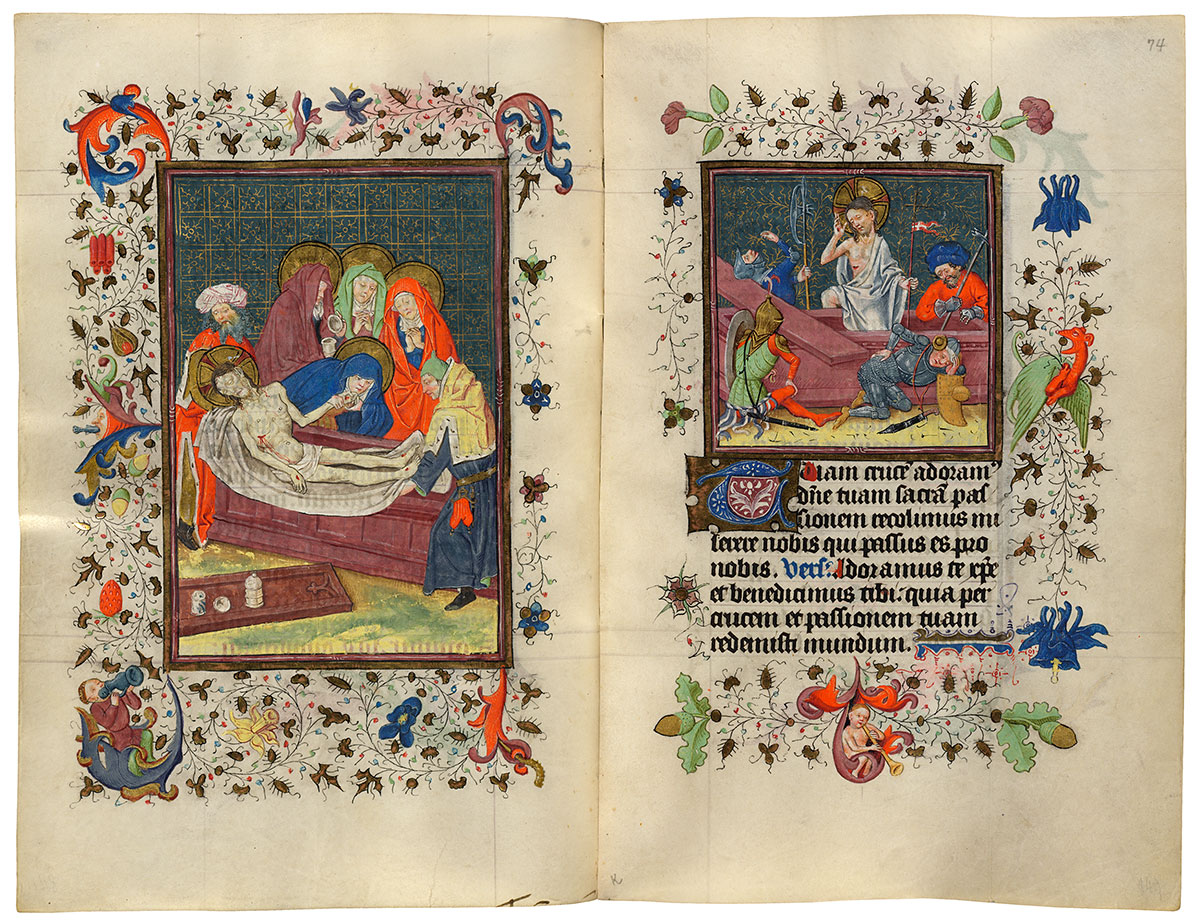 74
Tuam crucē adoram⁹
dn̄e tuam sacrā pas
sionem recolimus mi
serere nobis qui passus es pro
nobis. Vers: Adoramus te xp̄e
et benedicimus tibi: quia per
crucem et passionem tuam
redemisti mundum.
K